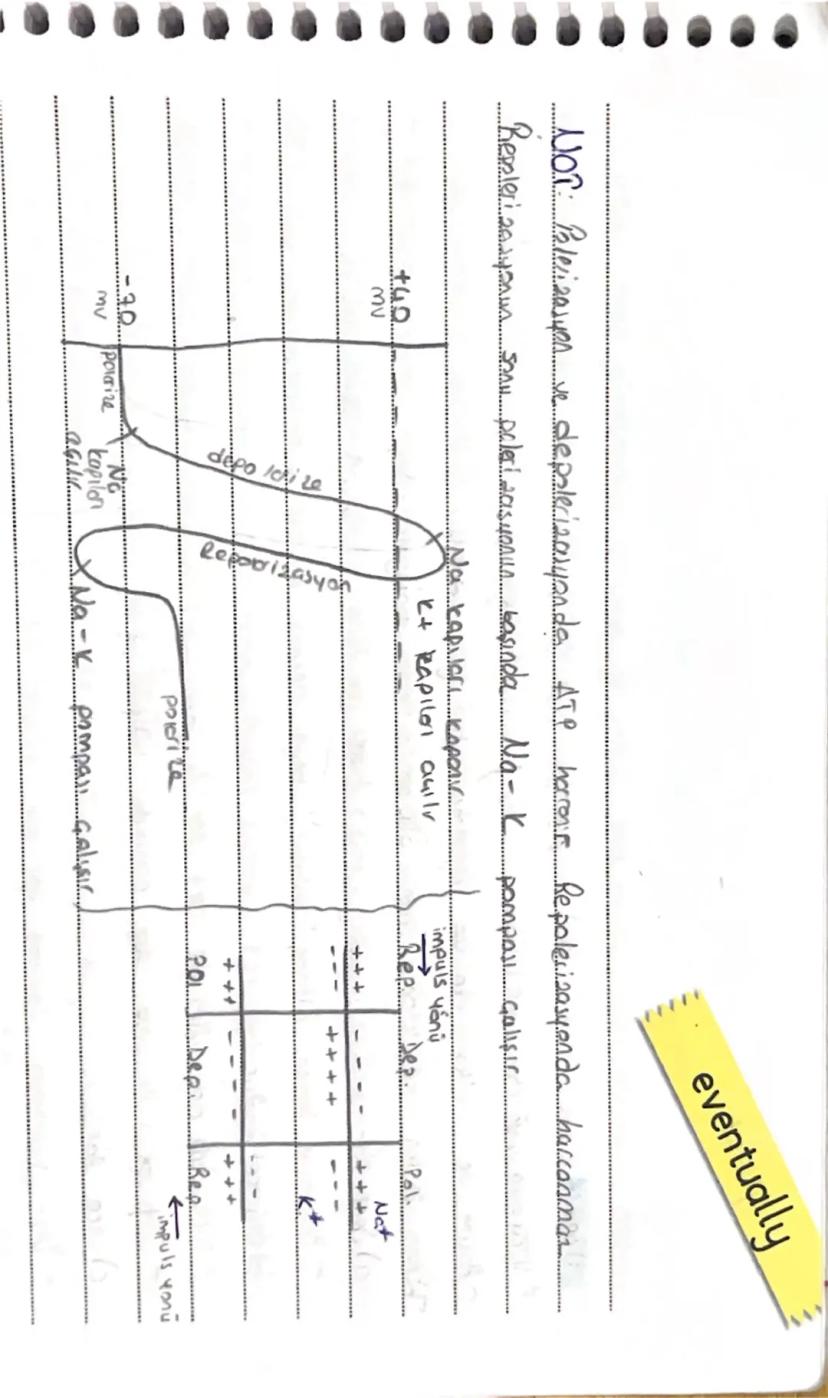 eventually
Not: Polerizasyon ve depolerizasyonda ATP harcanır Repolerizasyonda harcanmaz
Repolerizasyonun sonu polerizasyonun başında Na-K pompası çalışır
+40
mv
-70
mv
polarize
Na
kapıları
açılır
depolarize
Repolarizasyon
Na kapıları kapanır
K+ kapıları açılır
Na-K pompası çalışır
polarize
impuls yönü
Rep. Dep. Pol.
Na+
+++ ---- +++
--- ++++ ---
K+
---
+++ ---- +++
Pol Dep. Rep
impuls yönü